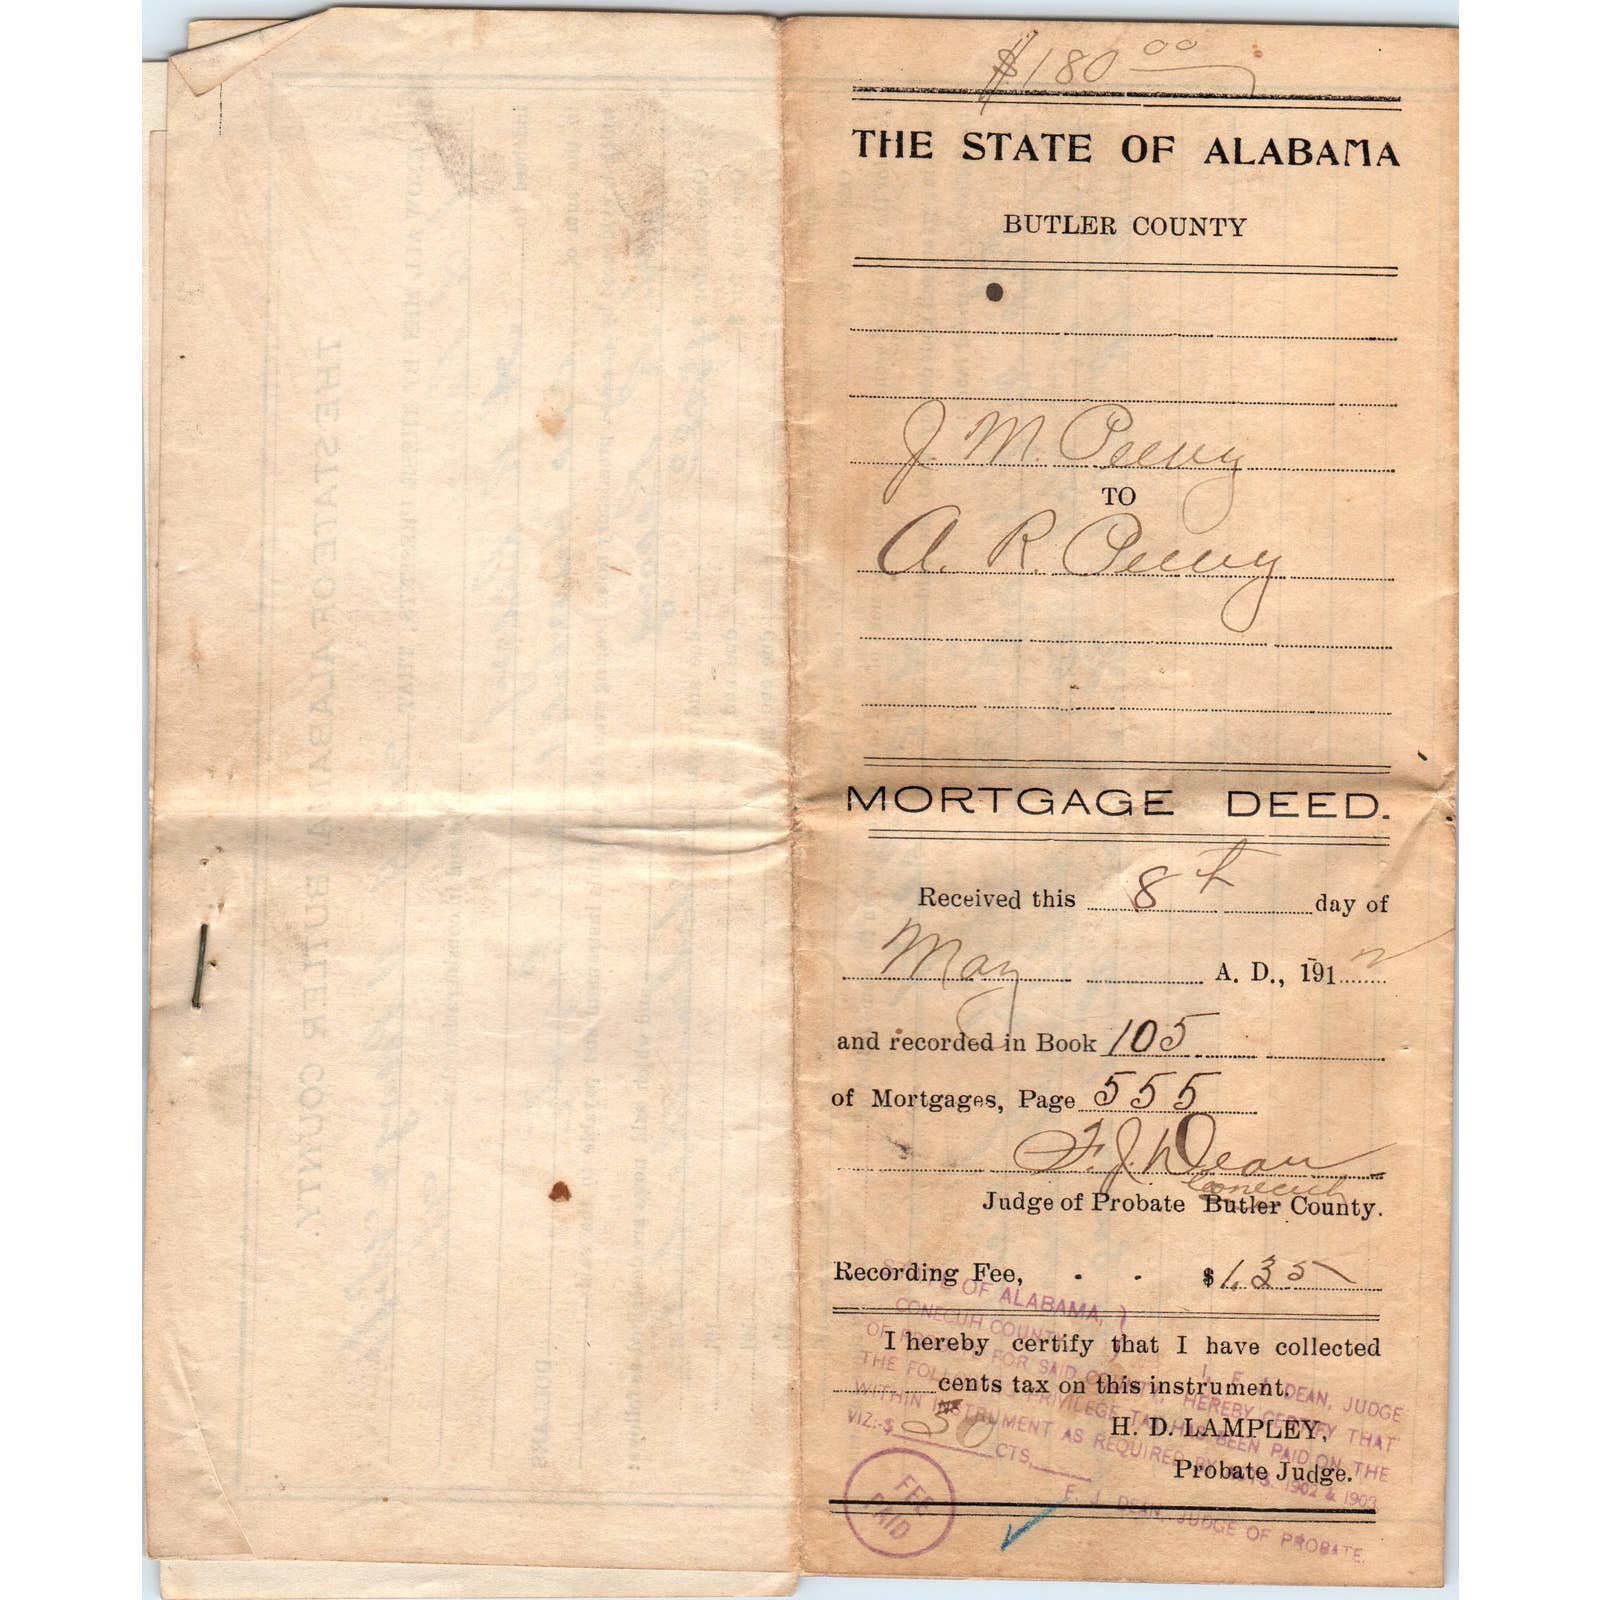 $180 00
THE STATE OF ALABAMA
BUTLER COUNTY
J. M. Peevy
TO
A. R. Peevy
MORTGAGE DEED.
Received this 8th day of
May A. D., 1912
and recorded in Book 105
of Mortgages, Page 555
F. J. Dean
Conecuh
Judge of Probate Butler County.
Recording Fee, $1.35
STATE OF ALABAMA,
CONECUH COUNTY
I hereby certify that I have collected
cents tax on this instrument.
H. D. LAMPLEY,
Probate Judge.
I, F. J. DEAN, JUDGE
OF PROBATE FOR SAID COUNTY, HEREBY CERTIFY THAT
THE FOLLOWING PRIVILEGE TAX HAS BEEN PAID ON THE
WITHIN INSTRUMENT AS REQUIRED BY ACTS. 1902 & 1903
VIZ:-$ 30 CTS.
F. J. DEAN, JUDGE OF PROBATE.
FEE
PAID